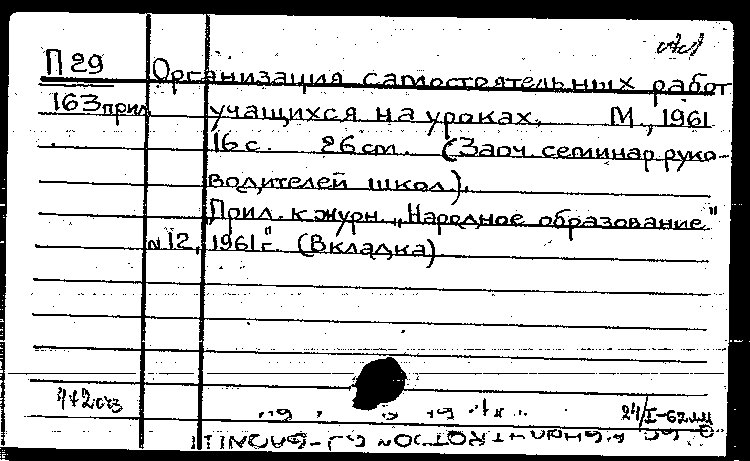 П 29
Организация самостоятельных работ
163 прил. учащихся на уроках. М., 1961
16 с. 26 см. (Заоч. семинар руко-
водителей школ).
Прил. к журн. „Народное образование"
N 12, 1961 г. (Вкладка)